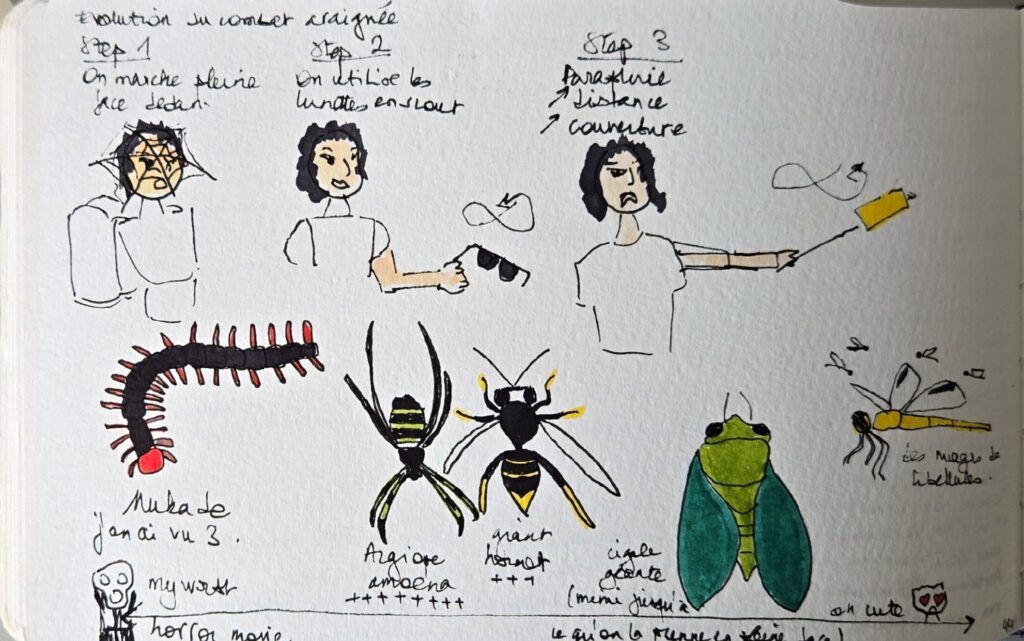 Evolution du combat araignée
Step 1
On marche pleine
face dedans
Step 2
On utilise les
lunettes en scout
Step 3
Parapluie
↗ distance
↗ couverture
Mukade
j'en ai vu 3.
Argiope
amoena
++++++++
giant
hornet
+++
cigale
géante
(mimi jusqu'à
ce qu'on la prenne en pleine face)
des nuages de
libellules.
my worst
horror movie.
oh cute
44